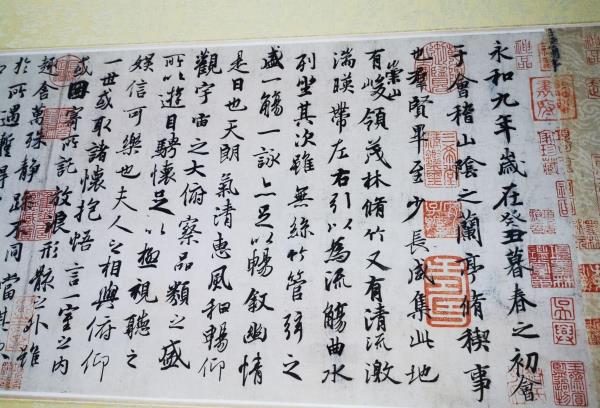 永和九年歲在癸丑暮春之初會
于會稽山陰之蘭亭脩稧事
也羣賢畢至少長咸集此地
有崇山峻領茂林脩竹又有清流激
湍暎帶左右引以為流觴曲水
列坐其次雖無絲竹管弦之
盛一觴一詠亦足以暢敘幽情
是日也天朗氣清惠風和暢仰
觀宇宙之大俯察品類之盛
所以遊目騁懷足以極視聽之
娛信可樂也夫人之相與俯仰
一世或取諸懷抱悟言一室之內
或因寄所託放浪形骸之外雖
趣舍萬殊靜躁不同當其
於所遇暫得